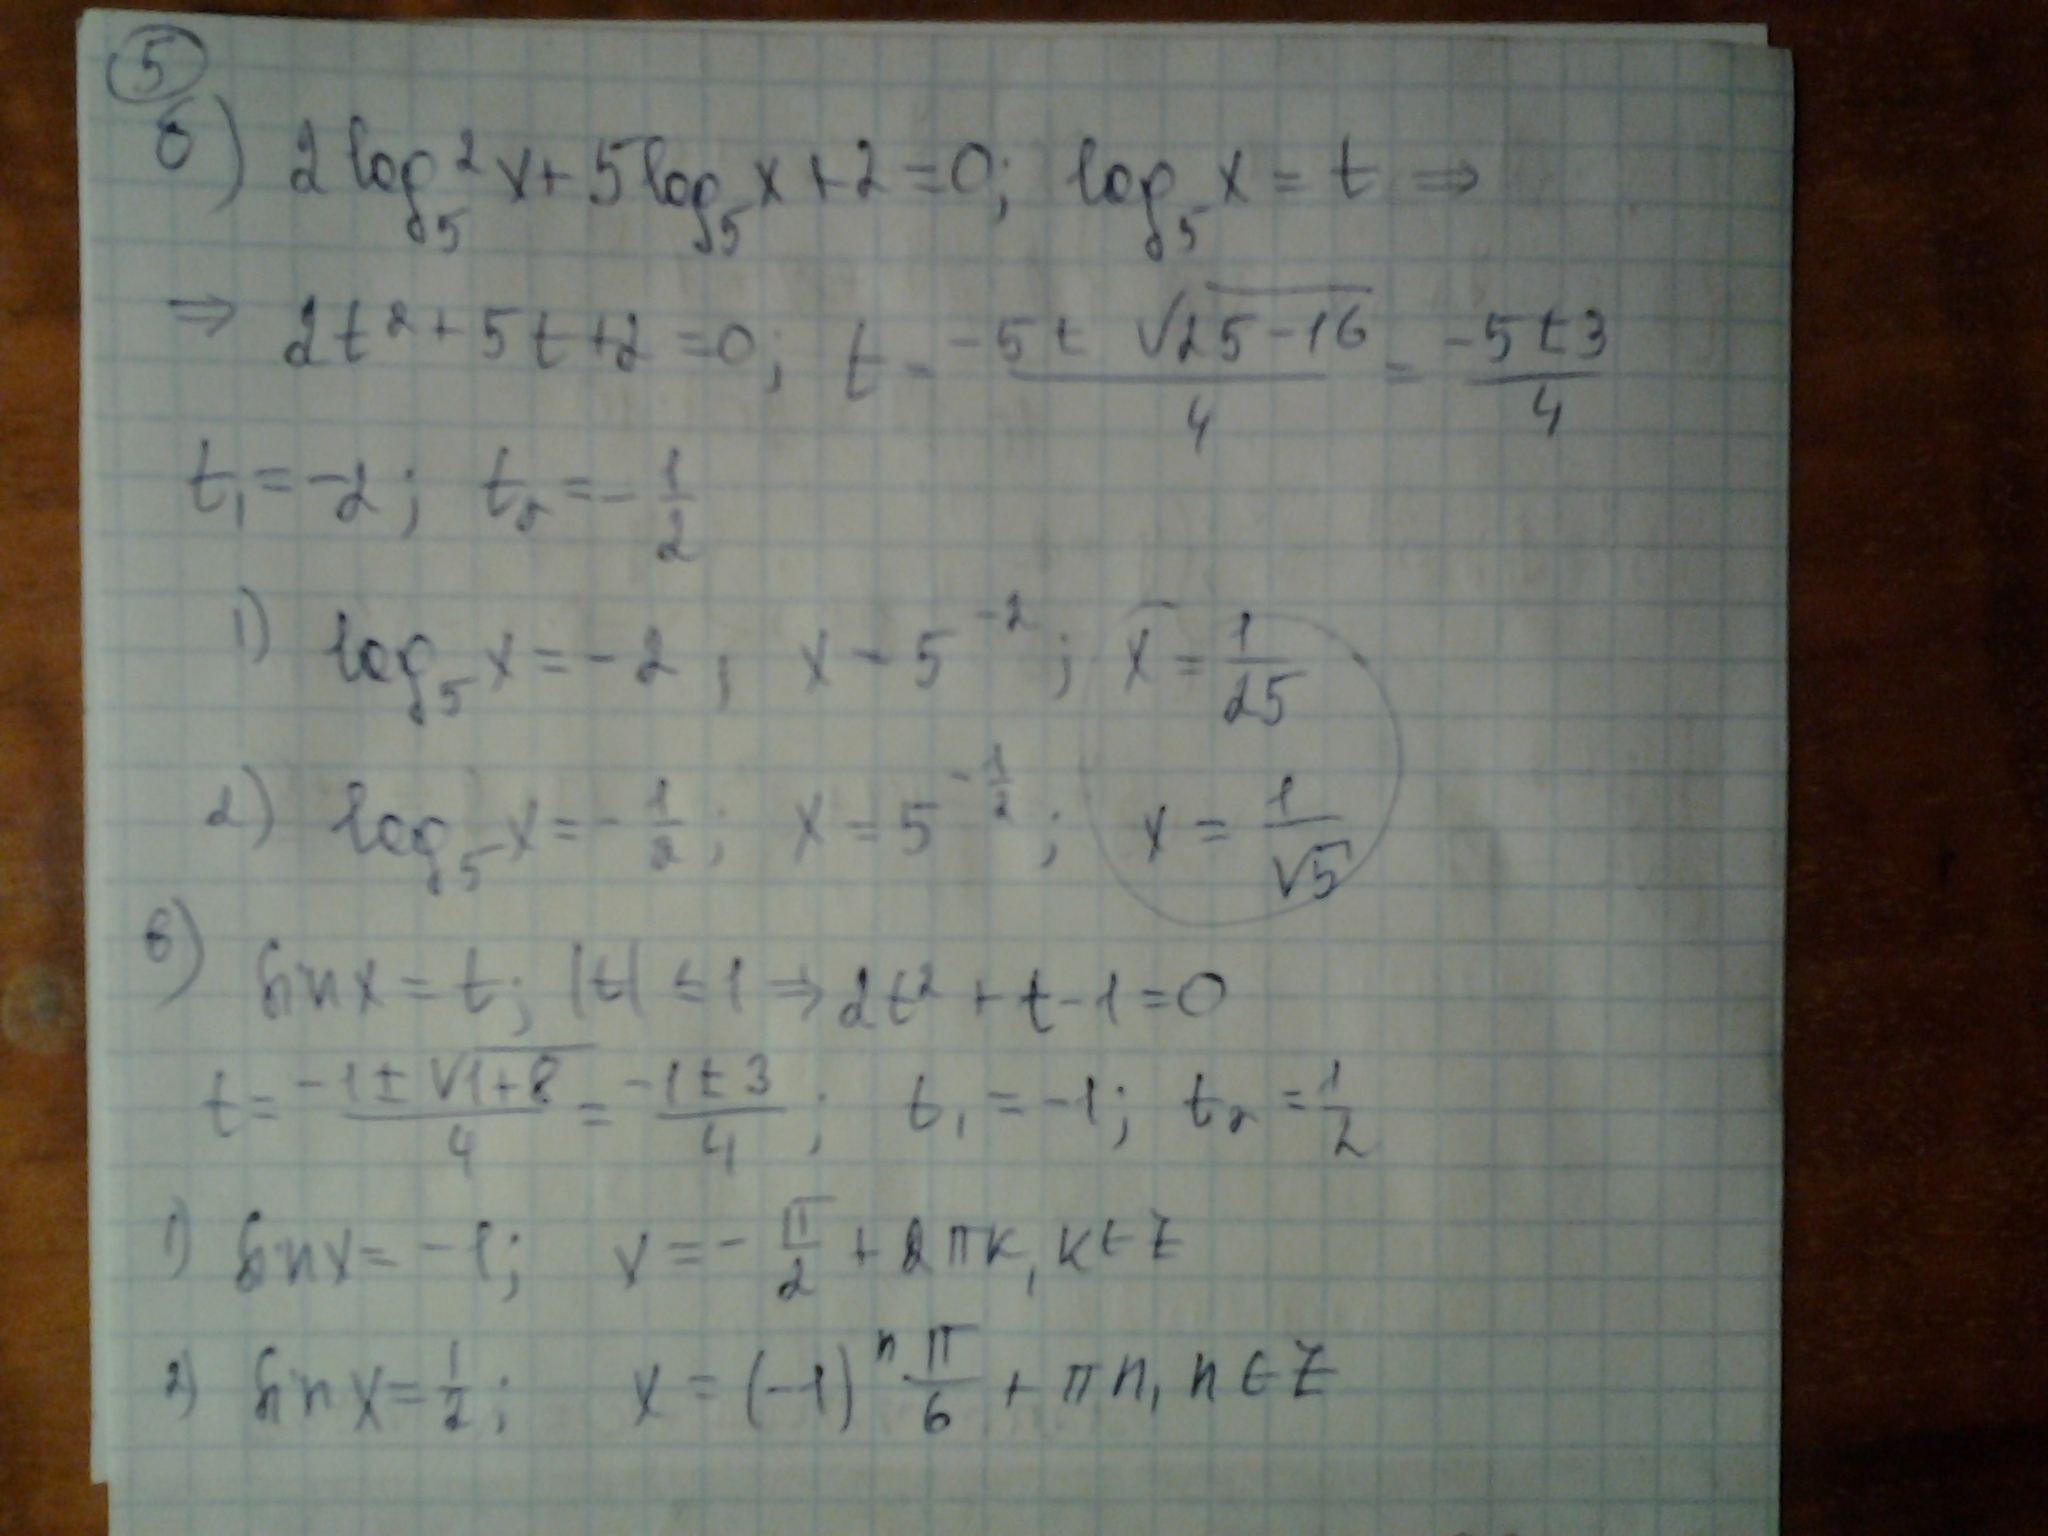 5
б) 2log₅²x + 5log₅x + 2 = 0; log₅x = t ⇒
⇒ 2t² + 5t + 2 = 0; t = (-5 ± √(25-16))/4 = (-5 ± 3)/4
t₁ = -2; t₂ = -1/2
1) log₅x = -2; x = 5⁻²; x = 1/25
2) log₅x = -1/2; x = 5^(-1/2); x = 1/√5
в) sin x = t; |t| ≤ 1 ⇒ 2t² + t - 1 = 0
t = (-1 ± √(1+8))/4 = (-1 ± 3)/4; t₁ = -1; t₂ = 1/2
1) sin x = -1; x = -π/2 + 2πk, k ∈ Z
2) sin x = 1/2; x = (-1)ⁿ π/6 + πn, n ∈ Z